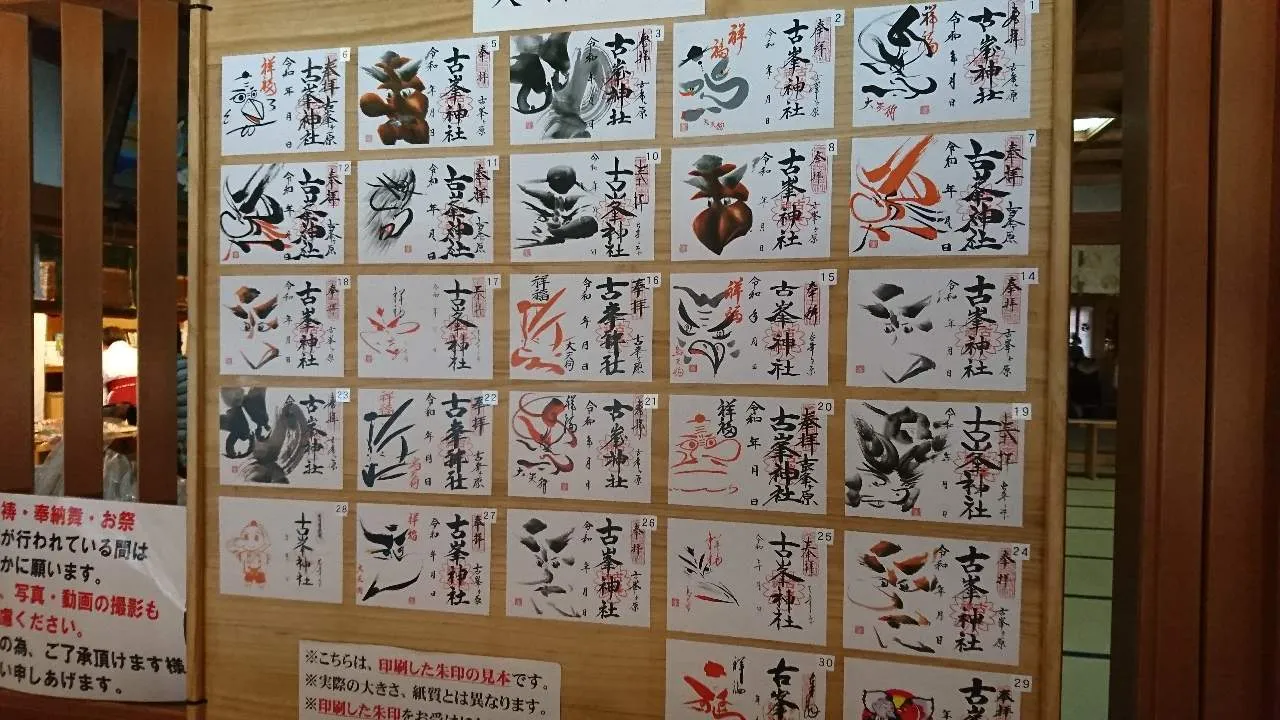 1
奉拝
古峯ヶ原
古峯神社
令和 年 月 日
祥福
大天狗
2
奉拝
古峯ヶ原
古峯神社
令和 年 月 日
祥福
3
奉拝
古峯ヶ原
古峯神社
令和 年 月 日
5
奉拝
古峯ヶ原
古峯神社
令和 年 月 日
6
奉拝 古峯ヶ原
古峯神社
令和 年 月 日
祥福
7
奉拝
古峯ヶ原
古峯神社
令和 年 月 日
8
奉拝
古峯ヶ原
古峯神社
令和 年 月 日
10
古峯神社
令和 年 月 日
11
奉拝
古峯神社
令和 年 月 日
12
奉拝
古峯ヶ原
古峯神社
令和 年 月 日
14
奉拝
古峯ヶ原
古峯神社
令和 年 月 日
15
奉拝
古峯ヶ原
古峯神社
令和 年 月 日
祥福
16
奉拝
古峯ヶ原
古峯神社
令和 年 月 日
祥福
大天狗
17
奉拝
古峯神社
祥福
18
奉拝
古峯ヶ原
古峯神社
令和 年 月 日
19
奉拝
古峯神社
令和 年 月 日
20
奉拝 古峯ヶ原
古峯神社
令和 年 月 日
祥福
21
奉拝
古峯ヶ原
古峯神社
令和 年 月 日
祥福
大天狗
22
奉拝
古峯ヶ原
古峯神社
令和 年 月 日
祥福
23
奉拝
古峯ヶ原
古峯神社
令和 年 月 日
24
奉拝
古峯ヶ原
古峯神社
令和 年 月 日
25
奉拝
古峯神社
令和 年 月 日
26
奉拝
古峯ヶ原
古峯神社
令和 年 月 日
27
奉拝
古峯ヶ原
古峯神社
令和 年 月 日
祥福
28
古峯神社
29
奉拝
古峯
30
古峯
祥福
祷・奉納舞・お祭
が行われている間は
かに願います。
、写真・動画の撮影も
慮ください。
の為、ご了承頂けます様
い申しあげます。
※こちらは、印刷した朱印の見本です。
※実際の大きさ、紙質とは異なります。
※印刷した朱印をお受けに